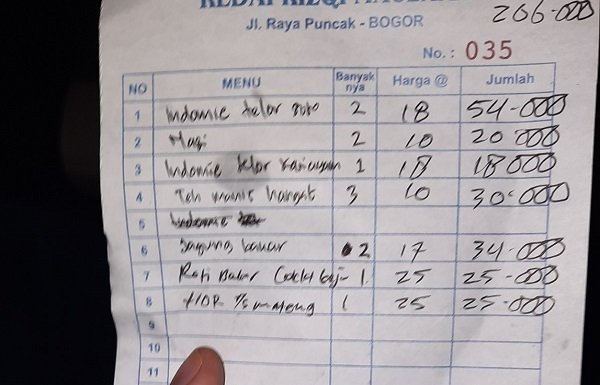 206-000
Jl. Raya Puncak - BOGOR
No. : 035
NO MENU Banyak nya Harga @ Jumlah
1 Indomie telor soto 2 18 54-000
2 Nasi 2 10 20 000
3 Indomie telor 1 18 18 000
4 Teh manis hangat 3 10 30-000
5 Indomie
6 Jagung bakar 2 17 34-000
7 Roti Bakar 1 25 25-000
8 1 25 25-000
9
10
11